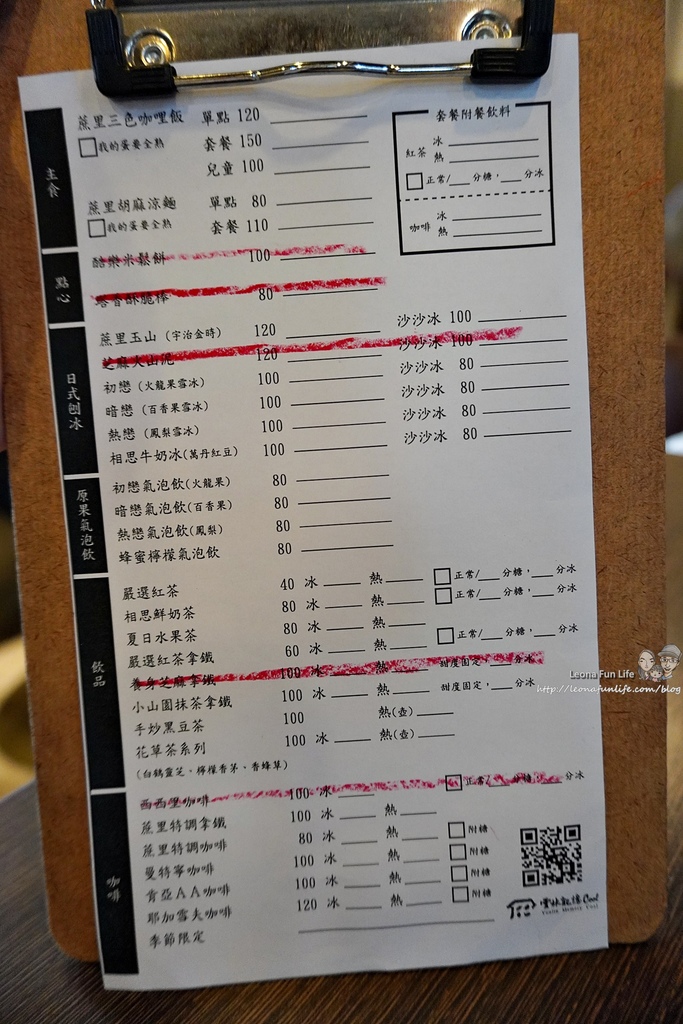 主食
蔗里三色咖哩飯 單點 120
我的蛋要全熟 套餐 150
兒童 100
蔗里胡麻涼麵 單點 80
我的蛋要全熟 套餐 110
套餐附餐飲料
紅茶 冰
熱
正常/ 分糖, 分冰
咖啡 冰
熱
點心
酪梨米鬆餅 100
塔香酥脆棒 80
日式刨冰
蔗里玉山 (宇治金時) 120 沙沙冰 100
芝麻火山泥 120 沙沙冰 100
初戀 (火龍果雪冰) 100 沙沙冰 80
暗戀 (百香果雪冰) 100 沙沙冰 80
熱戀 (鳳梨雪冰) 100 沙沙冰 80
相思牛奶冰(萬丹紅豆) 100 沙沙冰 80
原果氣泡飲
初戀氣泡飲(火龍果) 80
暗戀氣泡飲(百香果) 80
熱戀氣泡飲(鳳梨) 80
蜂蜜檸檬氣泡飲 80
飲品
嚴選紅茶 40 冰 熱 正常/ 分糖, 分冰
相思鮮奶茶 80 冰 熱 正常/ 分糖, 分冰
夏日水果茶 80 冰 熱
嚴選紅茶拿鐵 60 冰 熱 正常/ 分糖, 分冰
養身芝麻拿鐵 100 冰 熱 甜度固定, 分冰
小山園抹茶拿鐵 100 冰 熱 甜度固定, 分冰
手炒黑豆茶 100 熱(壺)
花草茶系列 100 冰 熱(壺)
(白鶴靈芝、檸檬香茅、香蜂草)
咖啡
西西里咖啡 100 冰 正常/ 分糖 分冰
蔗里特調拿鐵 100 冰 熱
蔗里特調咖啡 80 冰 熱 附糖
曼特寧咖啡 100 冰 熱 附糖
肯亞AA咖啡 100 冰 熱 附糖
耶加雪夫咖啡 120 冰 熱 附糖
季節限定
雲林記憶Cool
Yunlin Memory Cool
Leona Fun Life
http://leonafunlife.com/blog